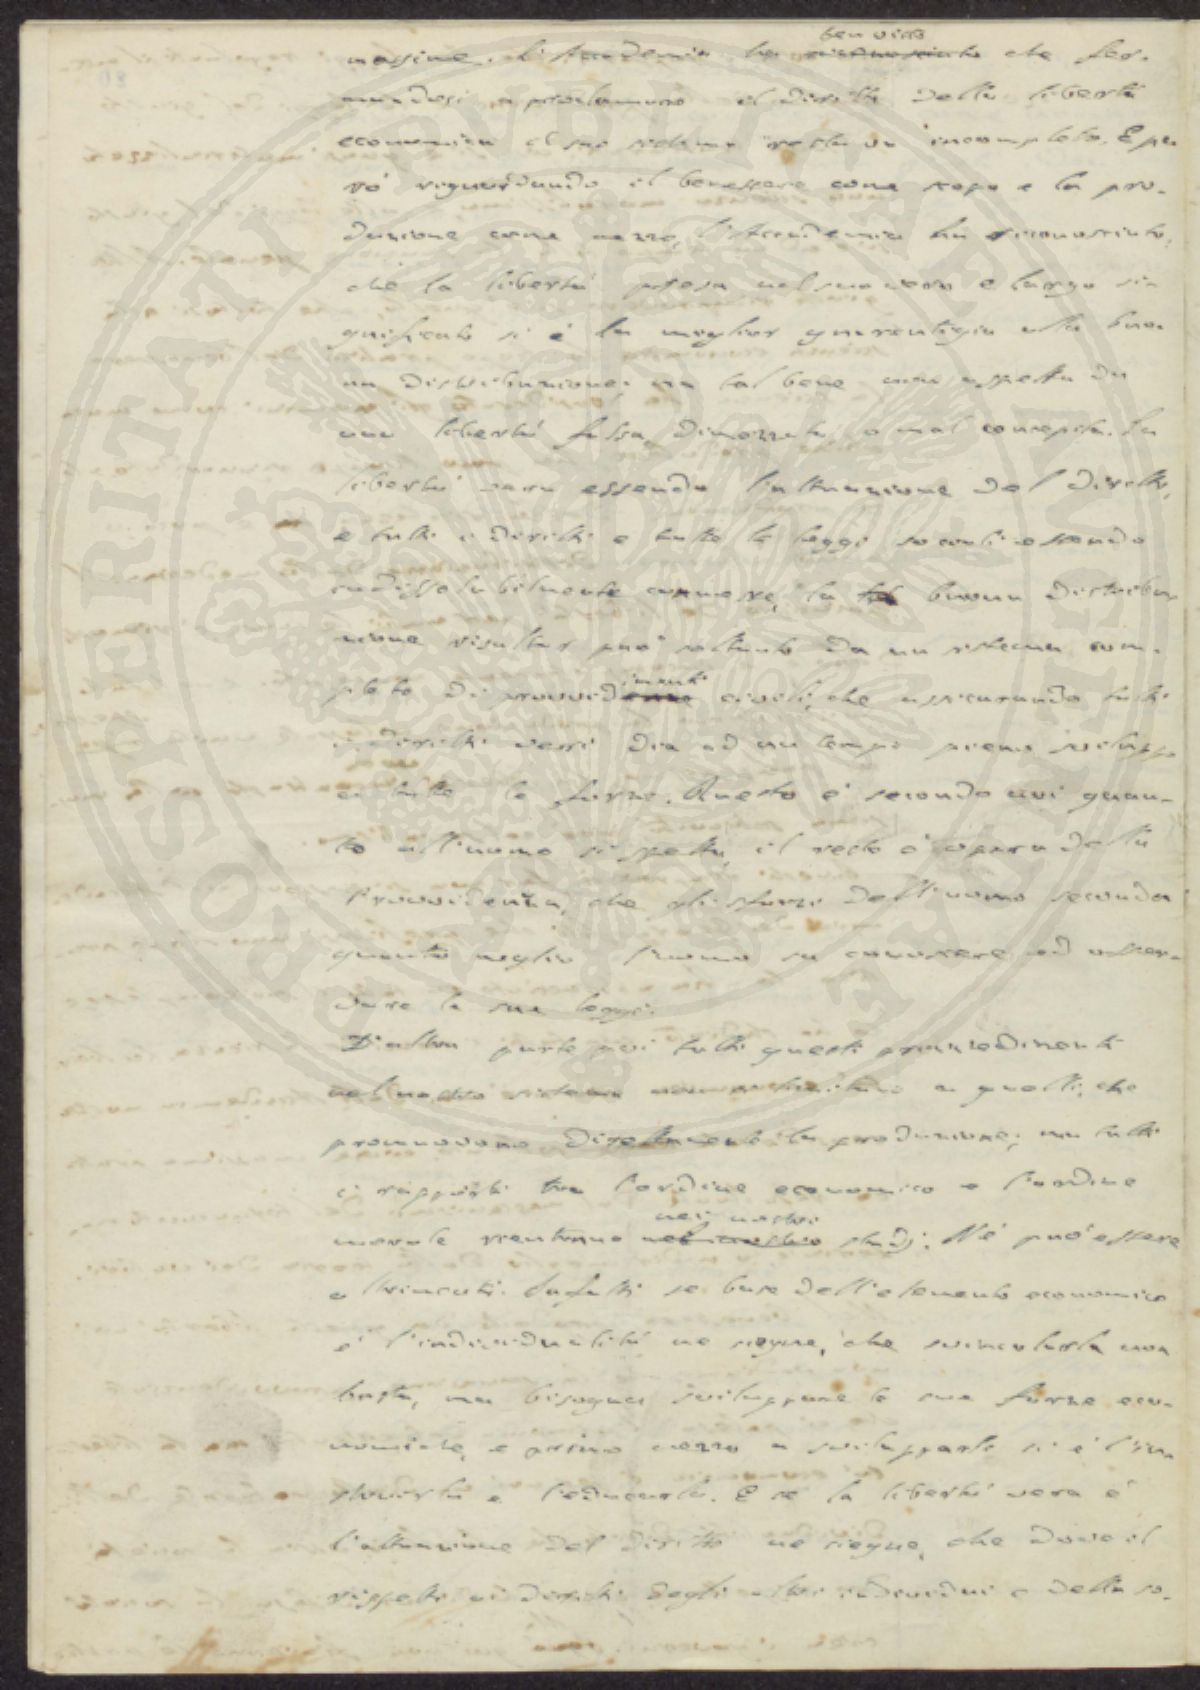 ben visto
massime. L'Accademia ha riconosciuto che fer-
mandosi a proclamare il diritto della libertà
economica il suo sistema resta va incompleto. E pe-
rò riguardando il benessere come scopo e la pro-
duzione come mezzo, l'Accademia ha riconosciuto,
che la libertà presa nel suo vero e largo si-
gnificato si è la miglior guarentigia alla buo-
na distribuzione; ma tal bene non aspetta da
una libertà falsa, dimezzata, o mal concepita. La
libertà vera essendo l'attuazione del diritto,
e tutti i diritti e tutte le leggi sociali essendo
indissolubilmente connesse, la buona distribu-
zione risultar può soltanto da un sistema com-
imenti
pleto di provved civili, che assicurando tutti
i diritti veri dia ad un tempo pieno sviluppo
a tutte le forze. Questo è secondo noi quan-
to all'uomo si spetta, il resto è opera della
Provvidenza, che gli sforzi dell'uomo seconda
quanto meglio l'uomo sa conoscere ed osser-
vare le sue leggi.
D'altra parte poi tutti questi provvedimenti
nel nostro sistema non si limitano a quelli, che
promuovono direttamente la produzione; ma tutti
i rapporti tra l'ordine economico e l'ordine
nei nostri
morale rientrano nel nostro studj. Nè può essere
altrimenti. Infatti se base dell'elemento economico
è l'individualità ne siegue, che svincolarla non
basta, ma bisogna sviluppare le sue forze eco-
nomiche, e primo mezzo a svilupparle si è l'in-
struirla e l'educarla. E se la libertà vera è
l'attuazione del diritto ne siegue, che dove il
rispetto ai diritti degli altri individui e della so-